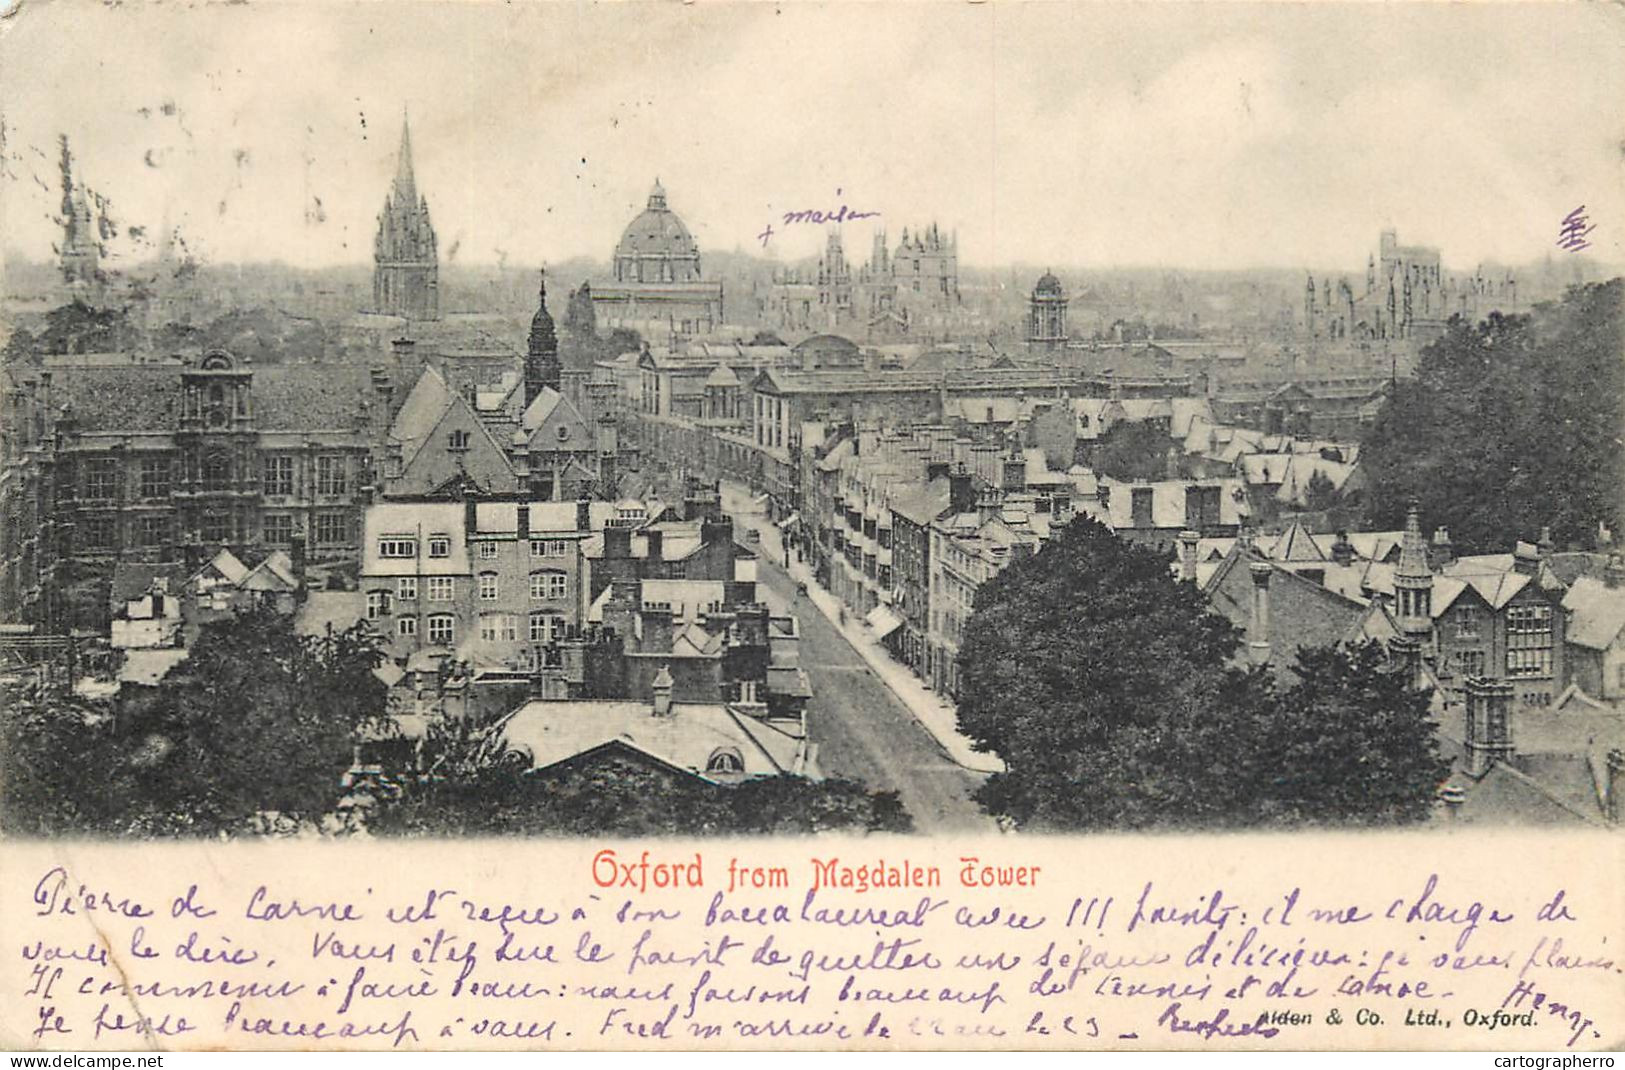 + maison
Oxford from Magdalen Tower
Pierre de Carné est reçu à son baccalauréat avec 111 points : il me charge de
vous le dire. Vous êtes sur le point de quitter un séjour délicieux : je vous plains.
Il commence à faire beau : nous faisons beaucoup de tennis et de canoe - Henry.
Je pense beaucoup à vous. Fred m'arrive le le 23 - Respects
Alden & Co. Ltd., Oxford.
cartographerro